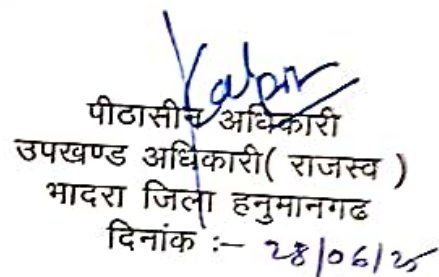 पीठासीन अधिकारी
उपखण्ड अधिकारी( राजस्व )
भादरा जिला हनुमानगढ
दिनांक :– 28/06/25